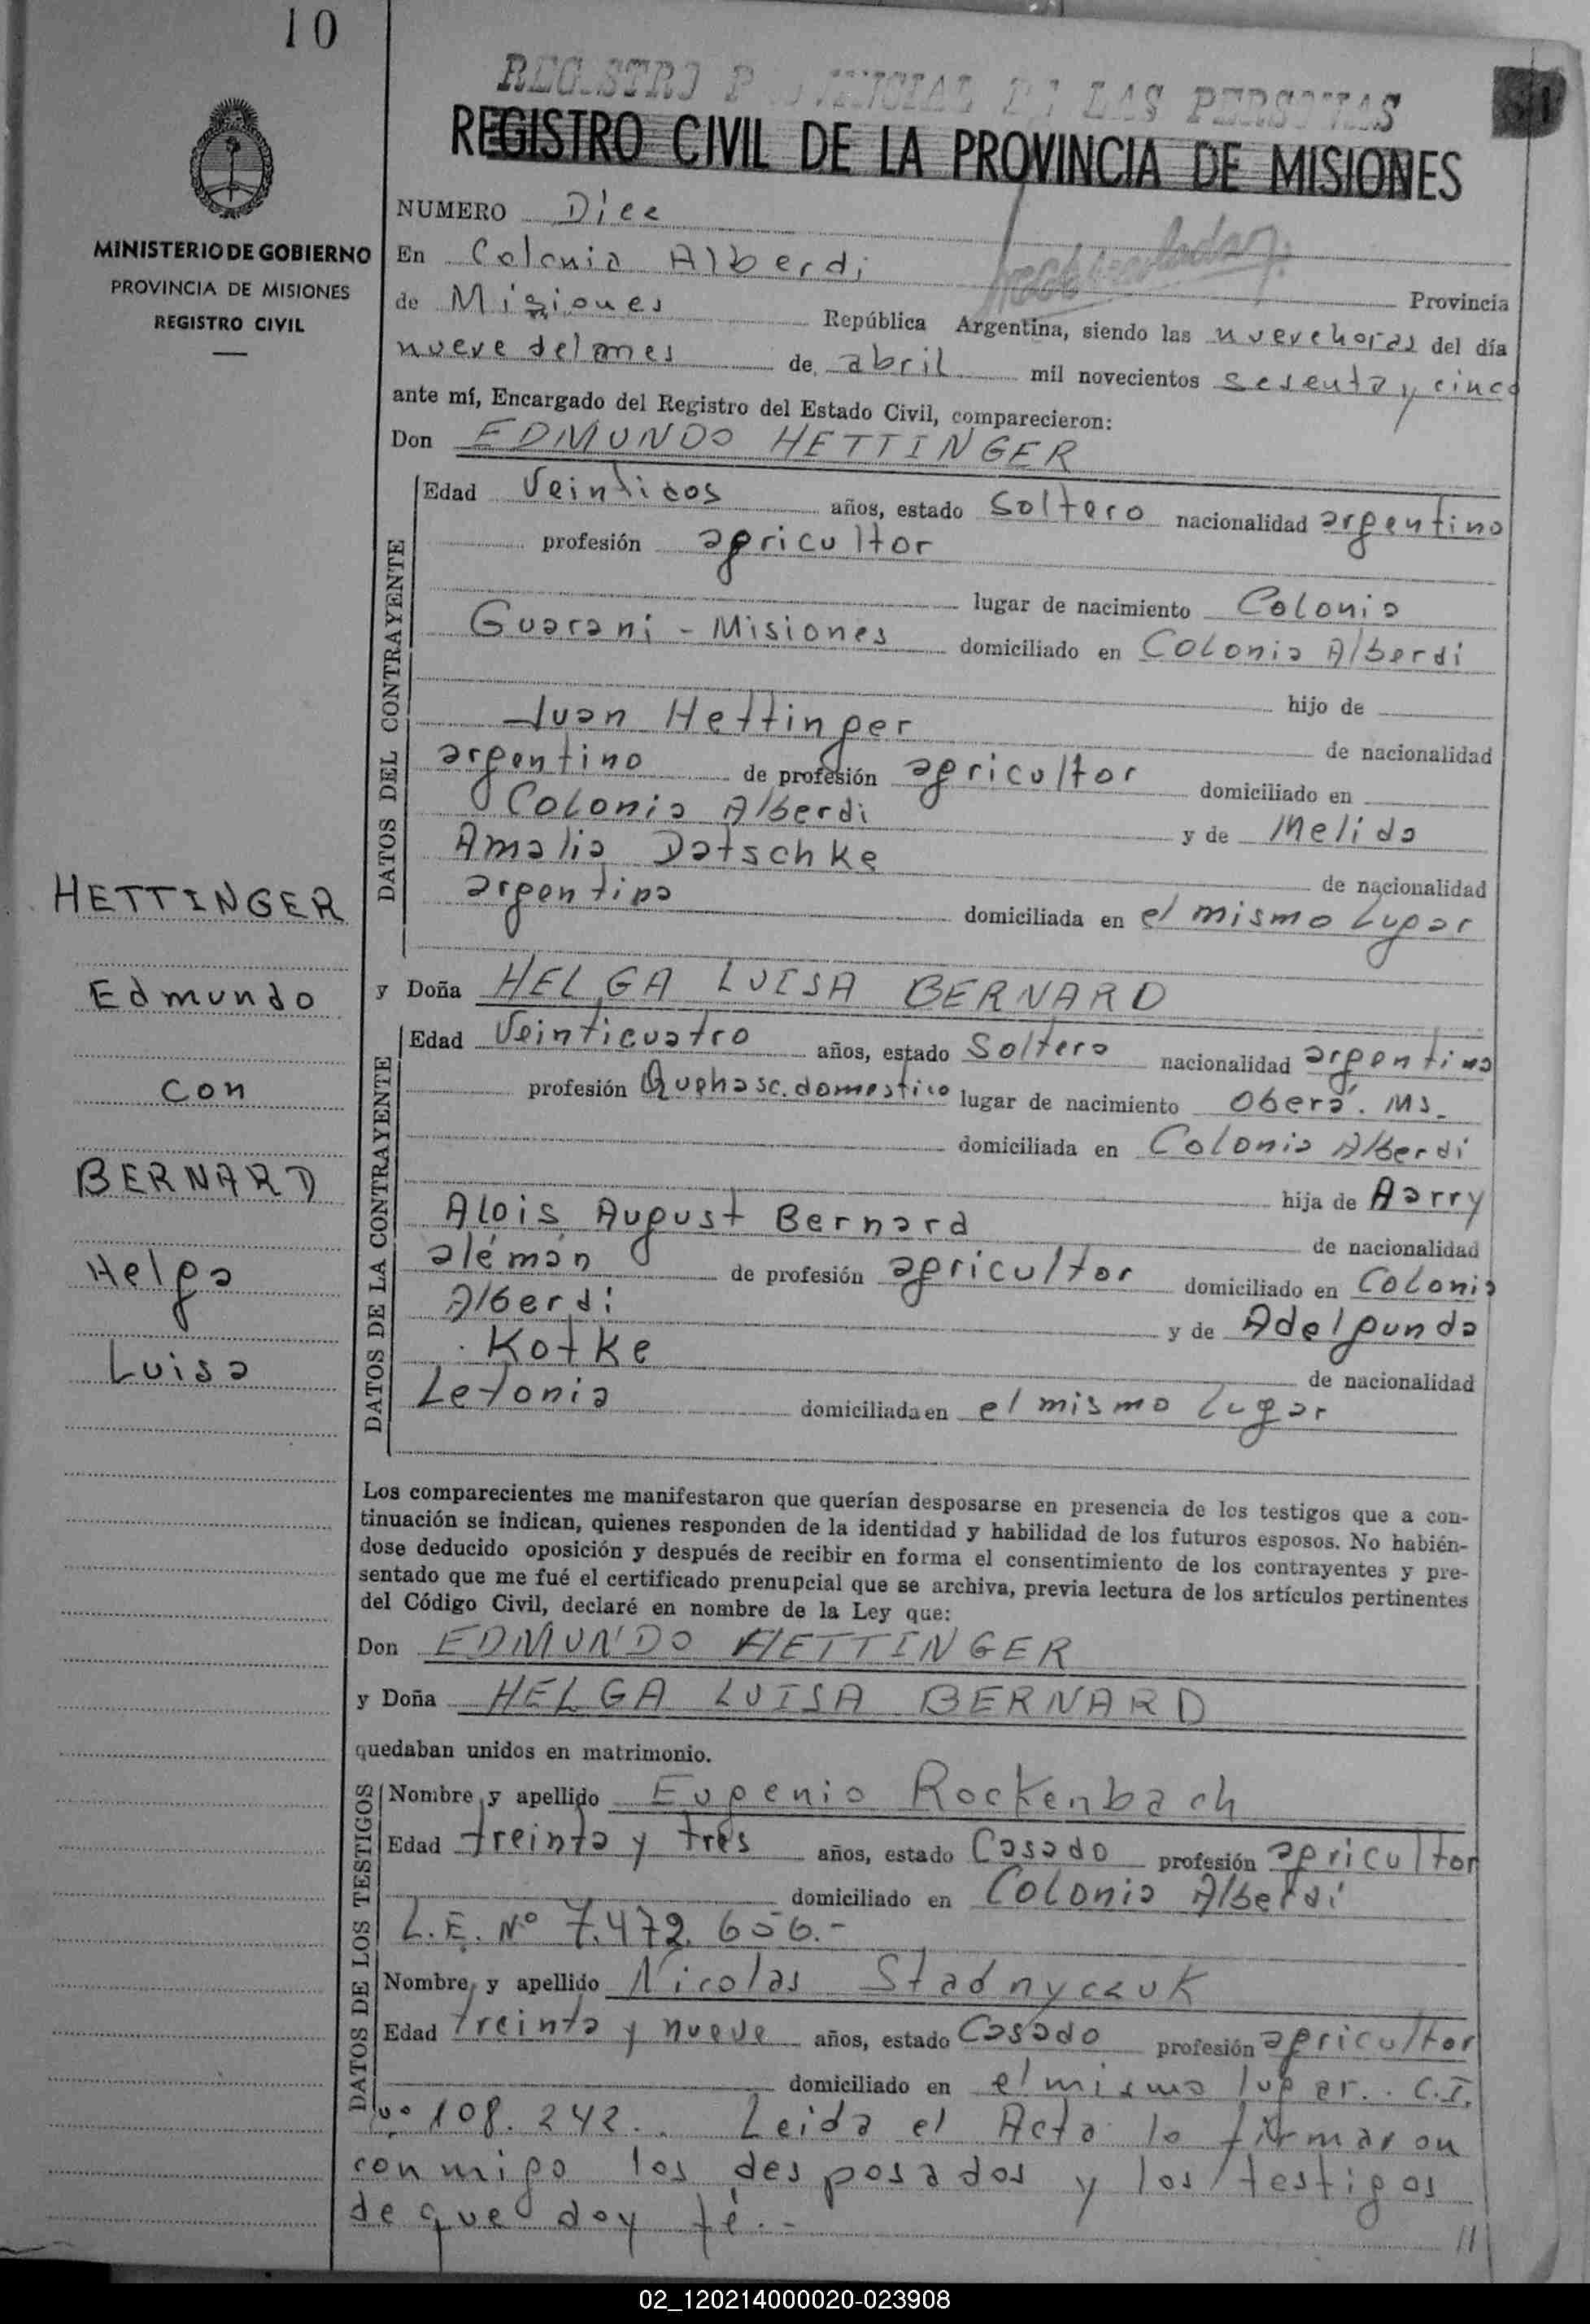 10
REGISTRO PROVINCIAL DE LAS PERSONAS
REGISTRO CIVIL DE LA PROVINCIA DE MISIONES
MINISTERIO DE GOBIERNO
PROVINCIA DE MISIONES
REGISTRO CIVIL
NUMERO Diez
En Colonia Alberdi
Provincia
de Misiones República Argentina, siendo las nueve horas del día
nueve del mes de abril mil novecientos sesenta y cinco
ante mí, Encargado del Registro del Estado Civil, comparecieron:
Don EDMUNDO HETTINGER
DATOS DEL CONTRAYENTE
Edad Veintidos años, estado Soltero nacionalidad argentino
profesión agricultor
lugar de nacimiento Colonia
Guarani - Misiones domiciliado en Colonia Alberdi
hijo de
Juan Hettinger de nacionalidad
argentino de profesión agricultor domiciliado en
Colonia Alberdi y de Melida
Amalia Datschke de nacionalidad
argentina domiciliada en el mismo Lugar
HETTINGER
Edmundo
con
BERNARD
Helga
Luisa
y Doña HELGA LUISA BERNARD
DATOS DE LA CONTRAYENTE
Edad Veinticuatro años, estado Soltera nacionalidad argentina
profesión Quehasc. domestico lugar de nacimiento Oberá. Ms.
domiciliada en Colonia Alberdi
hija de Harry
Alois August Bernard de nacionalidad
alémán de profesión agricultor domiciliado en Colonia
Alberdi y de Adelgunda
Kotke de nacionalidad
Letonia domiciliada en el mismo Lugar
Los comparecientes me manifestaron que querían desposarse en presencia de los testigos que a con-
tinuación se indican, quienes responden de la identidad y habilidad de los futuros esposos. No habién-
dose deducido oposición y después de recibir en forma el consentimiento de los contrayentes y pre-
sentado que me fué el certificado prenupcial que se archiva, previa lectura de los artículos pertinentes
del Código Civil, declaré en nombre de la Ley que:
Don EDMUNDO HETTINGER
y Doña HELGA LUISA BERNARD
quedaban unidos en matrimonio.
DATOS DE LOS TESTIGOS
Nombre y apellido Eugenio Rockenbach
Edad treinta y tres años, estado Casado profesión agricultor
domiciliado en Colonia Alberdi
L.E. Nº 7.472.656.-
Nombre y apellido Nicolas Stadnyczuk
Edad treinta y nueve años, estado Casado profesión agricultor
domiciliado en el mismo lugar. C.I.
nº 108.242.. Leida el Acta la firmaron
conmigo los desposados y los testigos
de que doy fé.-
//
02_120214000020-023908